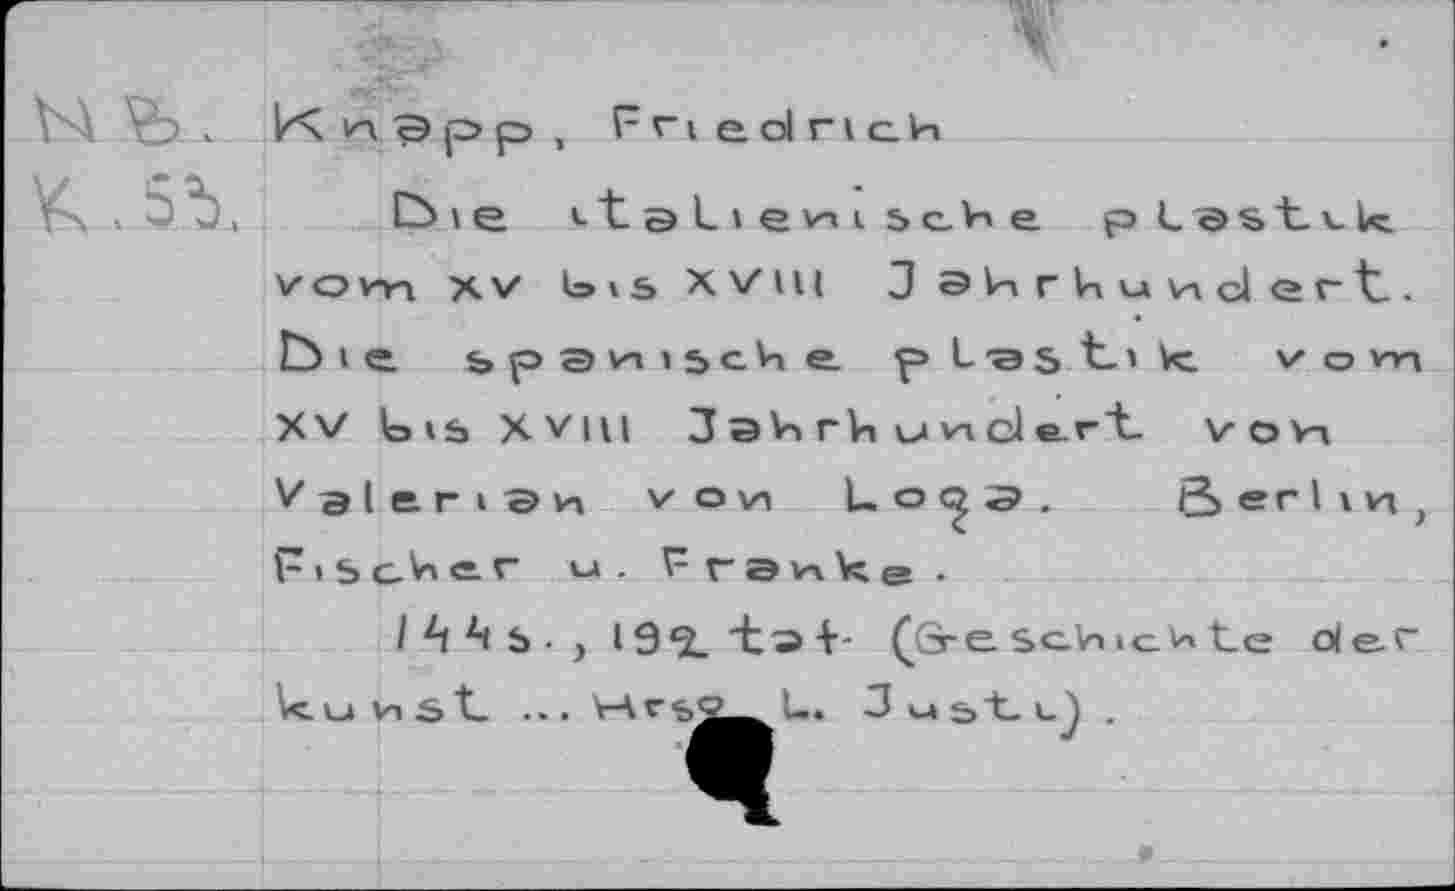 NB. Knapp, Friedrich
K.53. Die italienische plastik
vom XV bis XVIII Jahrhundert.
Die spanische plastik vom
XV bis XVIII Jahrhundert von
Valerian von Loga. Berlin,
Fischer u. Franke.
144s., 192 taf. (Geschichte der
kunst ... Hrsg L. Justi).